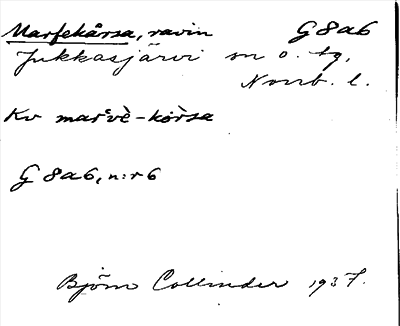 Marfekårsa, ravin G8a6
Jukkasjärvi sn o. tg.
Norrb. l.
Kv marvè-kòrsa
G 8a6, n:r 6
Björn Collinder 1937.